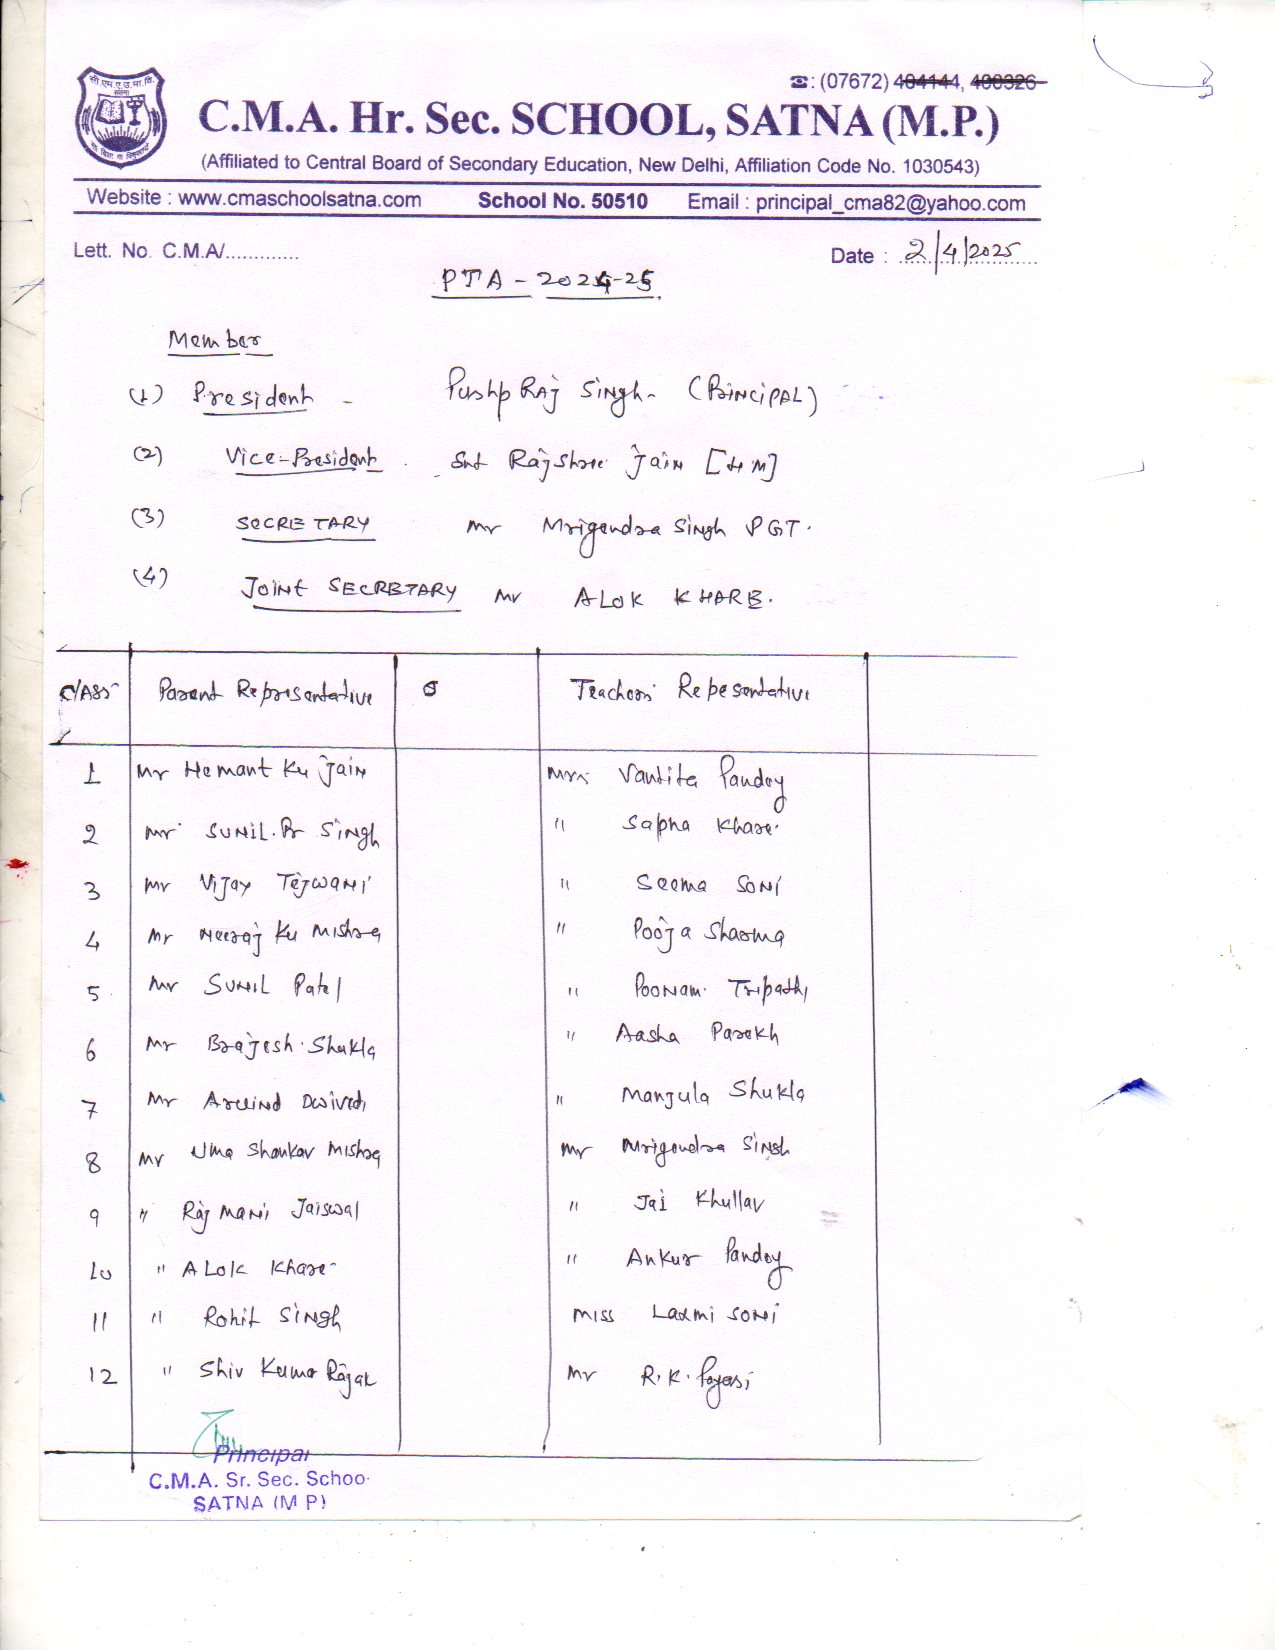 सी.एम.ए.उ.मा.वि.
सतना
☎: (07672) 404144, 400326
C.M.A. Hr. Sec. SCHOOL, SATNA (M.P.)
(Affiliated to Central Board of Secondary Education, New Delhi, Affiliation Code No. 1030543)
Website : www.cmaschoolsatna.com School No. 50510 Email : principal_cma82@yahoo.com
Lett. No. C.M.A/............. Date : 2/4/2025
PTA - 2024-25
Member
(1) President - Pushp Raj Singh - (Principal)
(2) Vice-President . Smt Rajshree Jain [H M]
(3) SECRETARY Mr Mrigendra Singh PGT.
(4) Joint SECRETARY Mr ALOK KHARE.
Class Parent Representative Teachers Repesentative
1 Mr Hemant Ku Jain Mrs Vantita Pandey
2 Mr SUNIL. Pr Singh " Sapna Khare
3 Mr Vijay Tejwani " Seema Soni
4 Mr Neeraj Ku Mishra " Pooja Sharma
5 Mr SUNIL Patel " Poonam Tripathi
6 Mr Brajesh Shukla " Aasha Parekh
7 Mr Arvind Dwivedi " Manjula Shukla
8 Mr Uma Shankar Mishra Mr Mrigendra Singh
9 " Raj Mani Jaiswal " Jai Khullar
10 " ALOK Khare " Ankur Pandey
11 " Rohit Singh Miss Laxmi Soni
12 " Shiv Kumar Rajak Mr R.K. Payasi
Principal
C.M.A. Sr. Sec. Schoo
SATNA (M P)